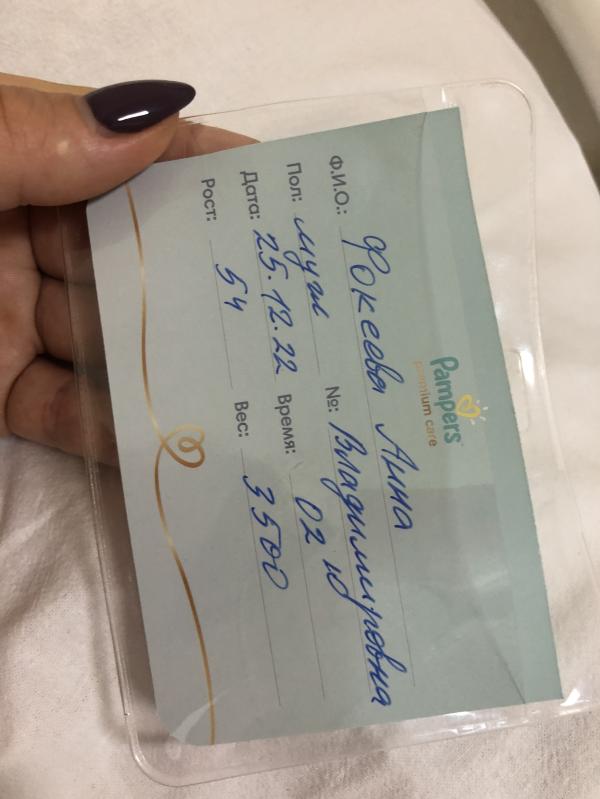 Pampers
premium care
Ф.И.О.: Фокеева Анна
Владимировна
Пол: муж №:
Дата: 25.12.22 Время: 02 10
Рост: 54 Вес: 3500